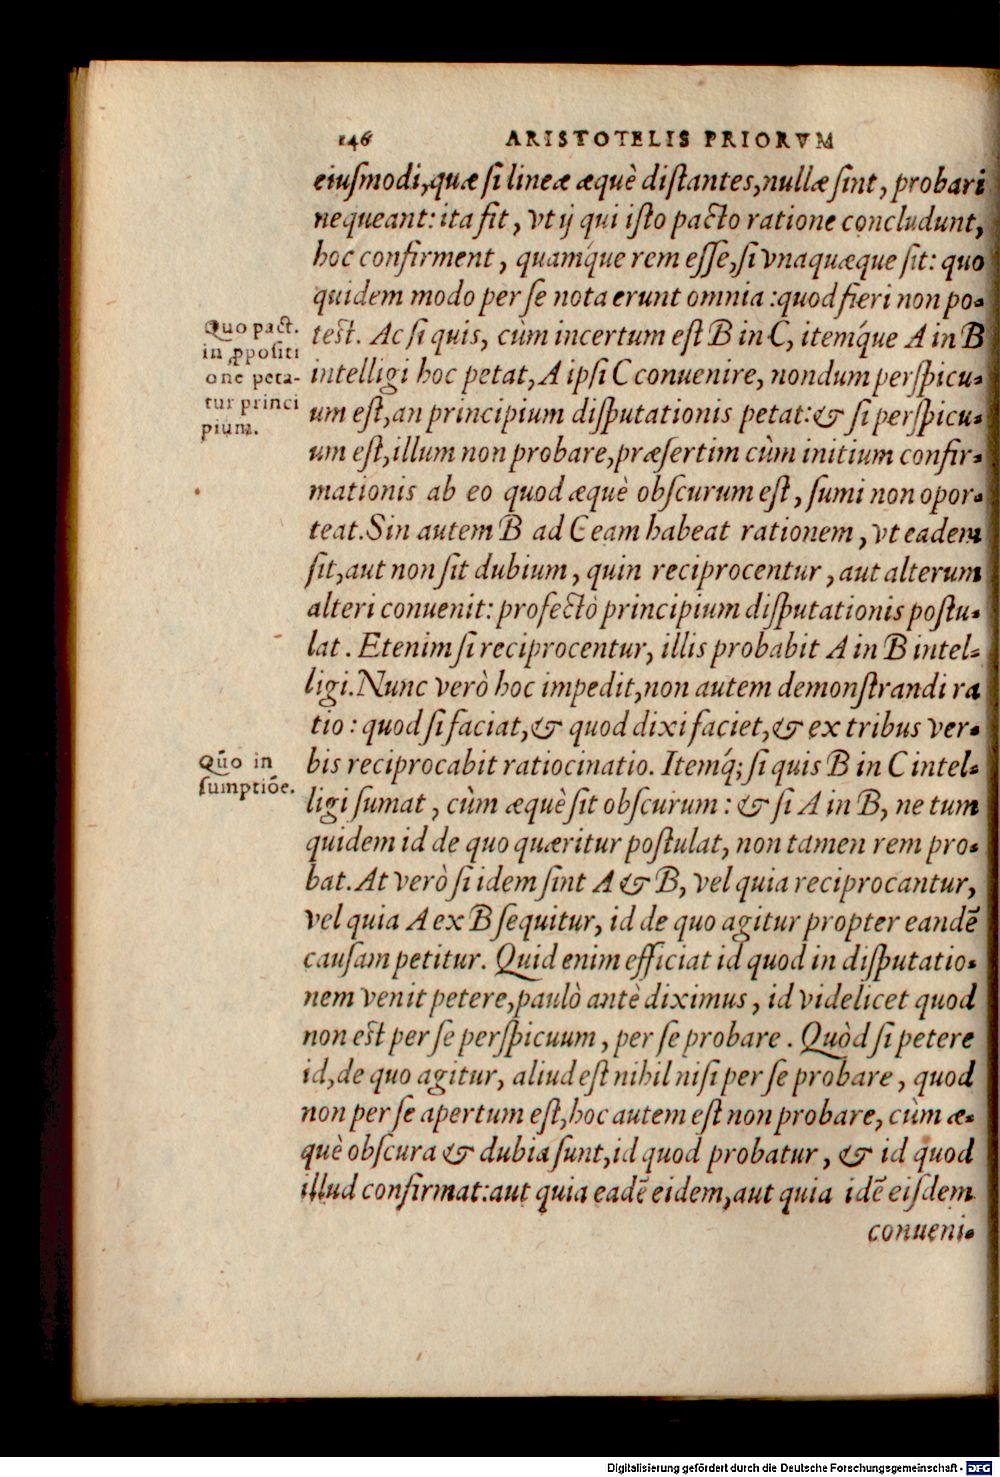 146 ARISTOTELIS PRIORVM
eiusmodi, quæ si lineæ æquè distantes, nullæ sint, probari
nequeant: ita fit, vt ij qui isto pacto ratione concludunt,
hoc confirment, quamq́ue rem esse, si vnaquæque sit: quo
quidem modo per se nota erunt omnia: quod fieri non po-
test. Ac si quis, cùm incertum est B in C, itemq́ue A in B
intelligi hoc petat, A ipsi C conuenire, nondum perspicu-
um est, an principium disputationis petat: & si perspicu-
um est, illum non probare, præsertim cùm initium confir-
mationis ab eo quod æquè obscurum est, sumi non opor-
teat. Sin autem B ad C eam habeat rationem, vt eadem
sit, aut non sit dubium, quin reciprocentur, aut alterum
alteri conuenit: profectò principium disputationis postu-
lat. Etenim si reciprocentur, illis probabit A in B intel-
ligi. Nunc verò hoc impedit, non autem demonstrandi ra
tio: quod si faciat, & quod dixi faciet, & ex tribus ver-
bis reciprocabit ratiocinatio. Itemq́; si quis B in C intel-
ligi sumat, cùm æquè sit obscurum: & si A in B, ne tum
quidem id de quo quæritur postulat, non tamen rem pro-
bat. At verò si idem sint A & B, vel quia reciprocantur,
vel quia A ex B sequitur, id de quo agitur propter eandē
causam petitur. Quid enim efficiat id quod in disputatio-
nem venit petere, paulò antè diximus, id videlicet quod
non est per se perspicuum, per se probare. Quòd si petere
id, de quo agitur, aliud est nihil nisi per se probare, quod
non per se apertum est, hoc autem est non probare, cùm æ-
què obscura & dubia sunt, id quod probatur, & id quod
illud confirmat: aut quia eadē eidem, aut quia idē eisdem
conueni-
Quo pact.
in ꝓpositi
one peta-
tur princi
pium.
Quō in
sumptiōe.
Digitalisierung gefördert durch die Deutsche Forschungsgemeinschaft - DFG